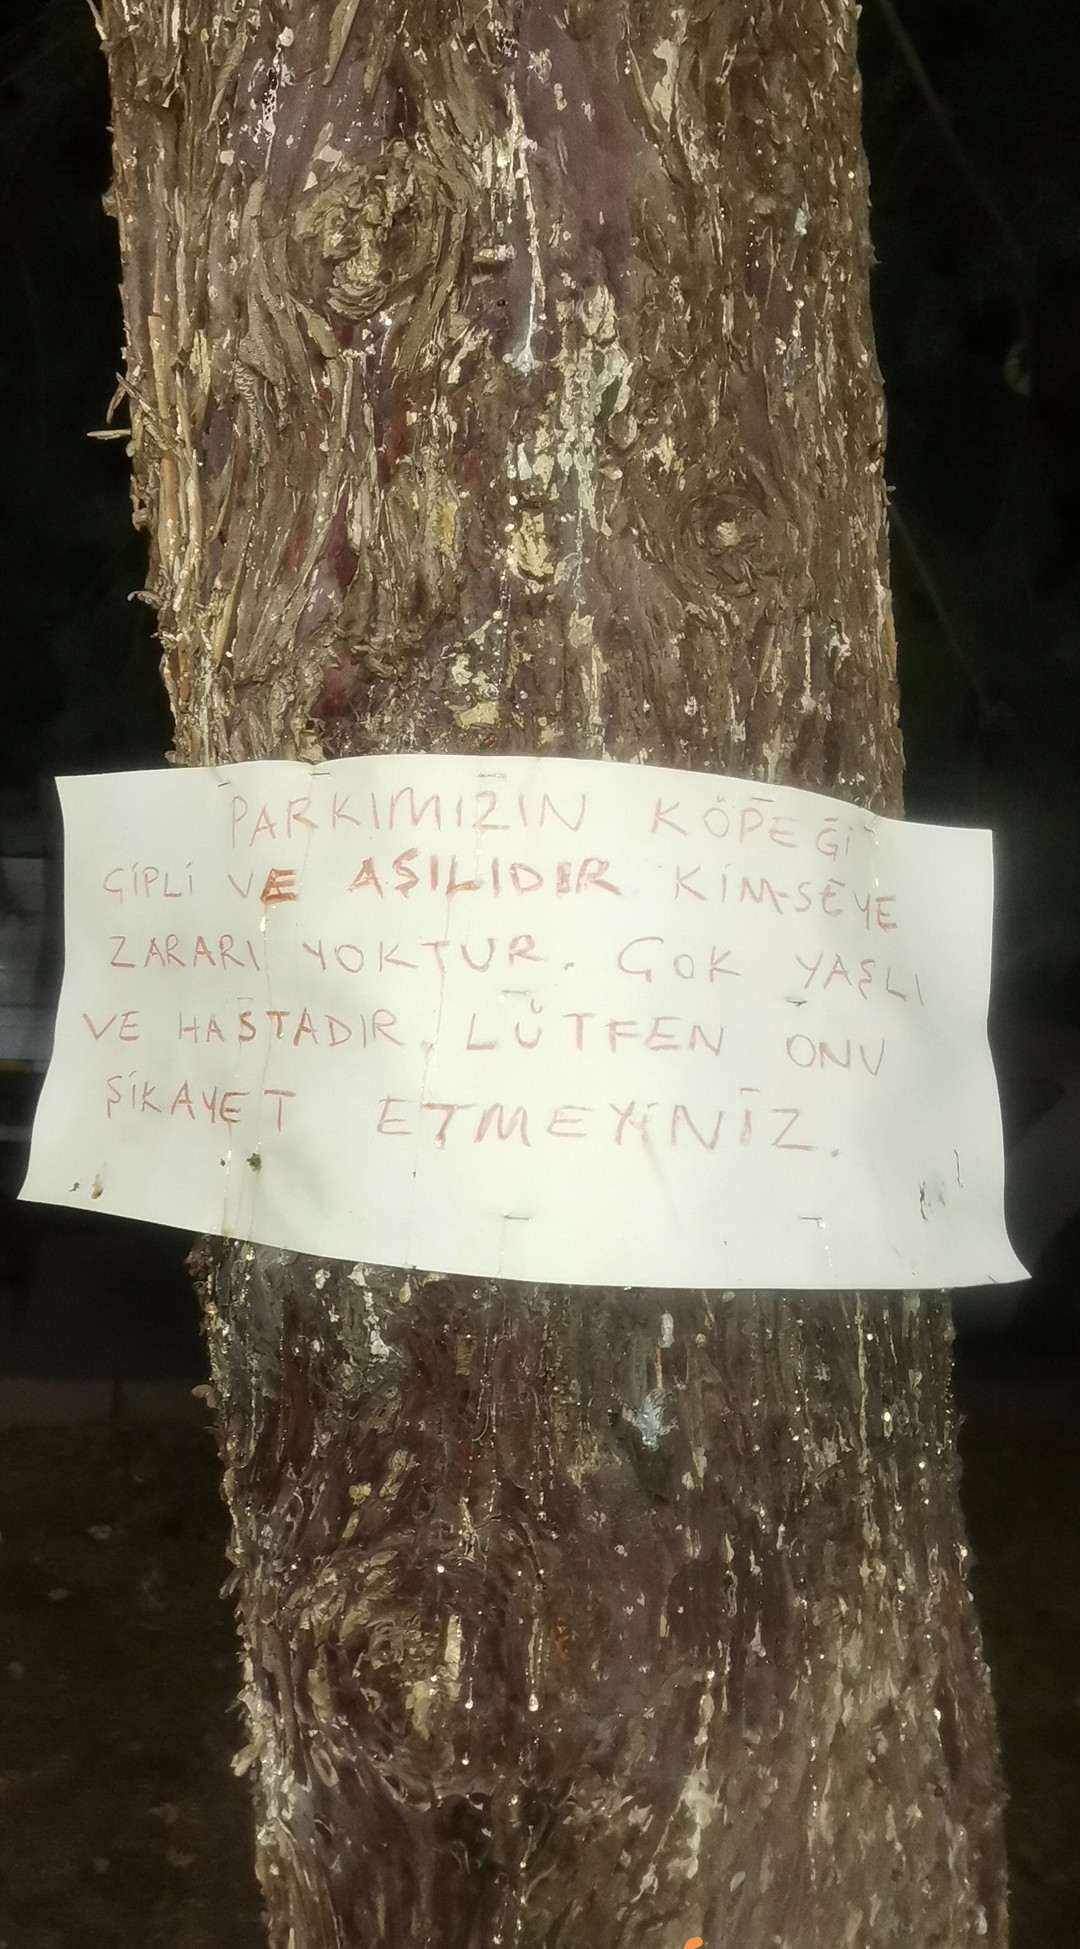 PARKIMIZIN KÖPEĞİ
ÇİPLİ VE AŞILIDIR KİMSEYE
ZARARI YOKTUR. ÇOK YAŞLI
VE HASTADIR. LÜTFEN ONU
ŞİKAYET ETMEYİNİZ.